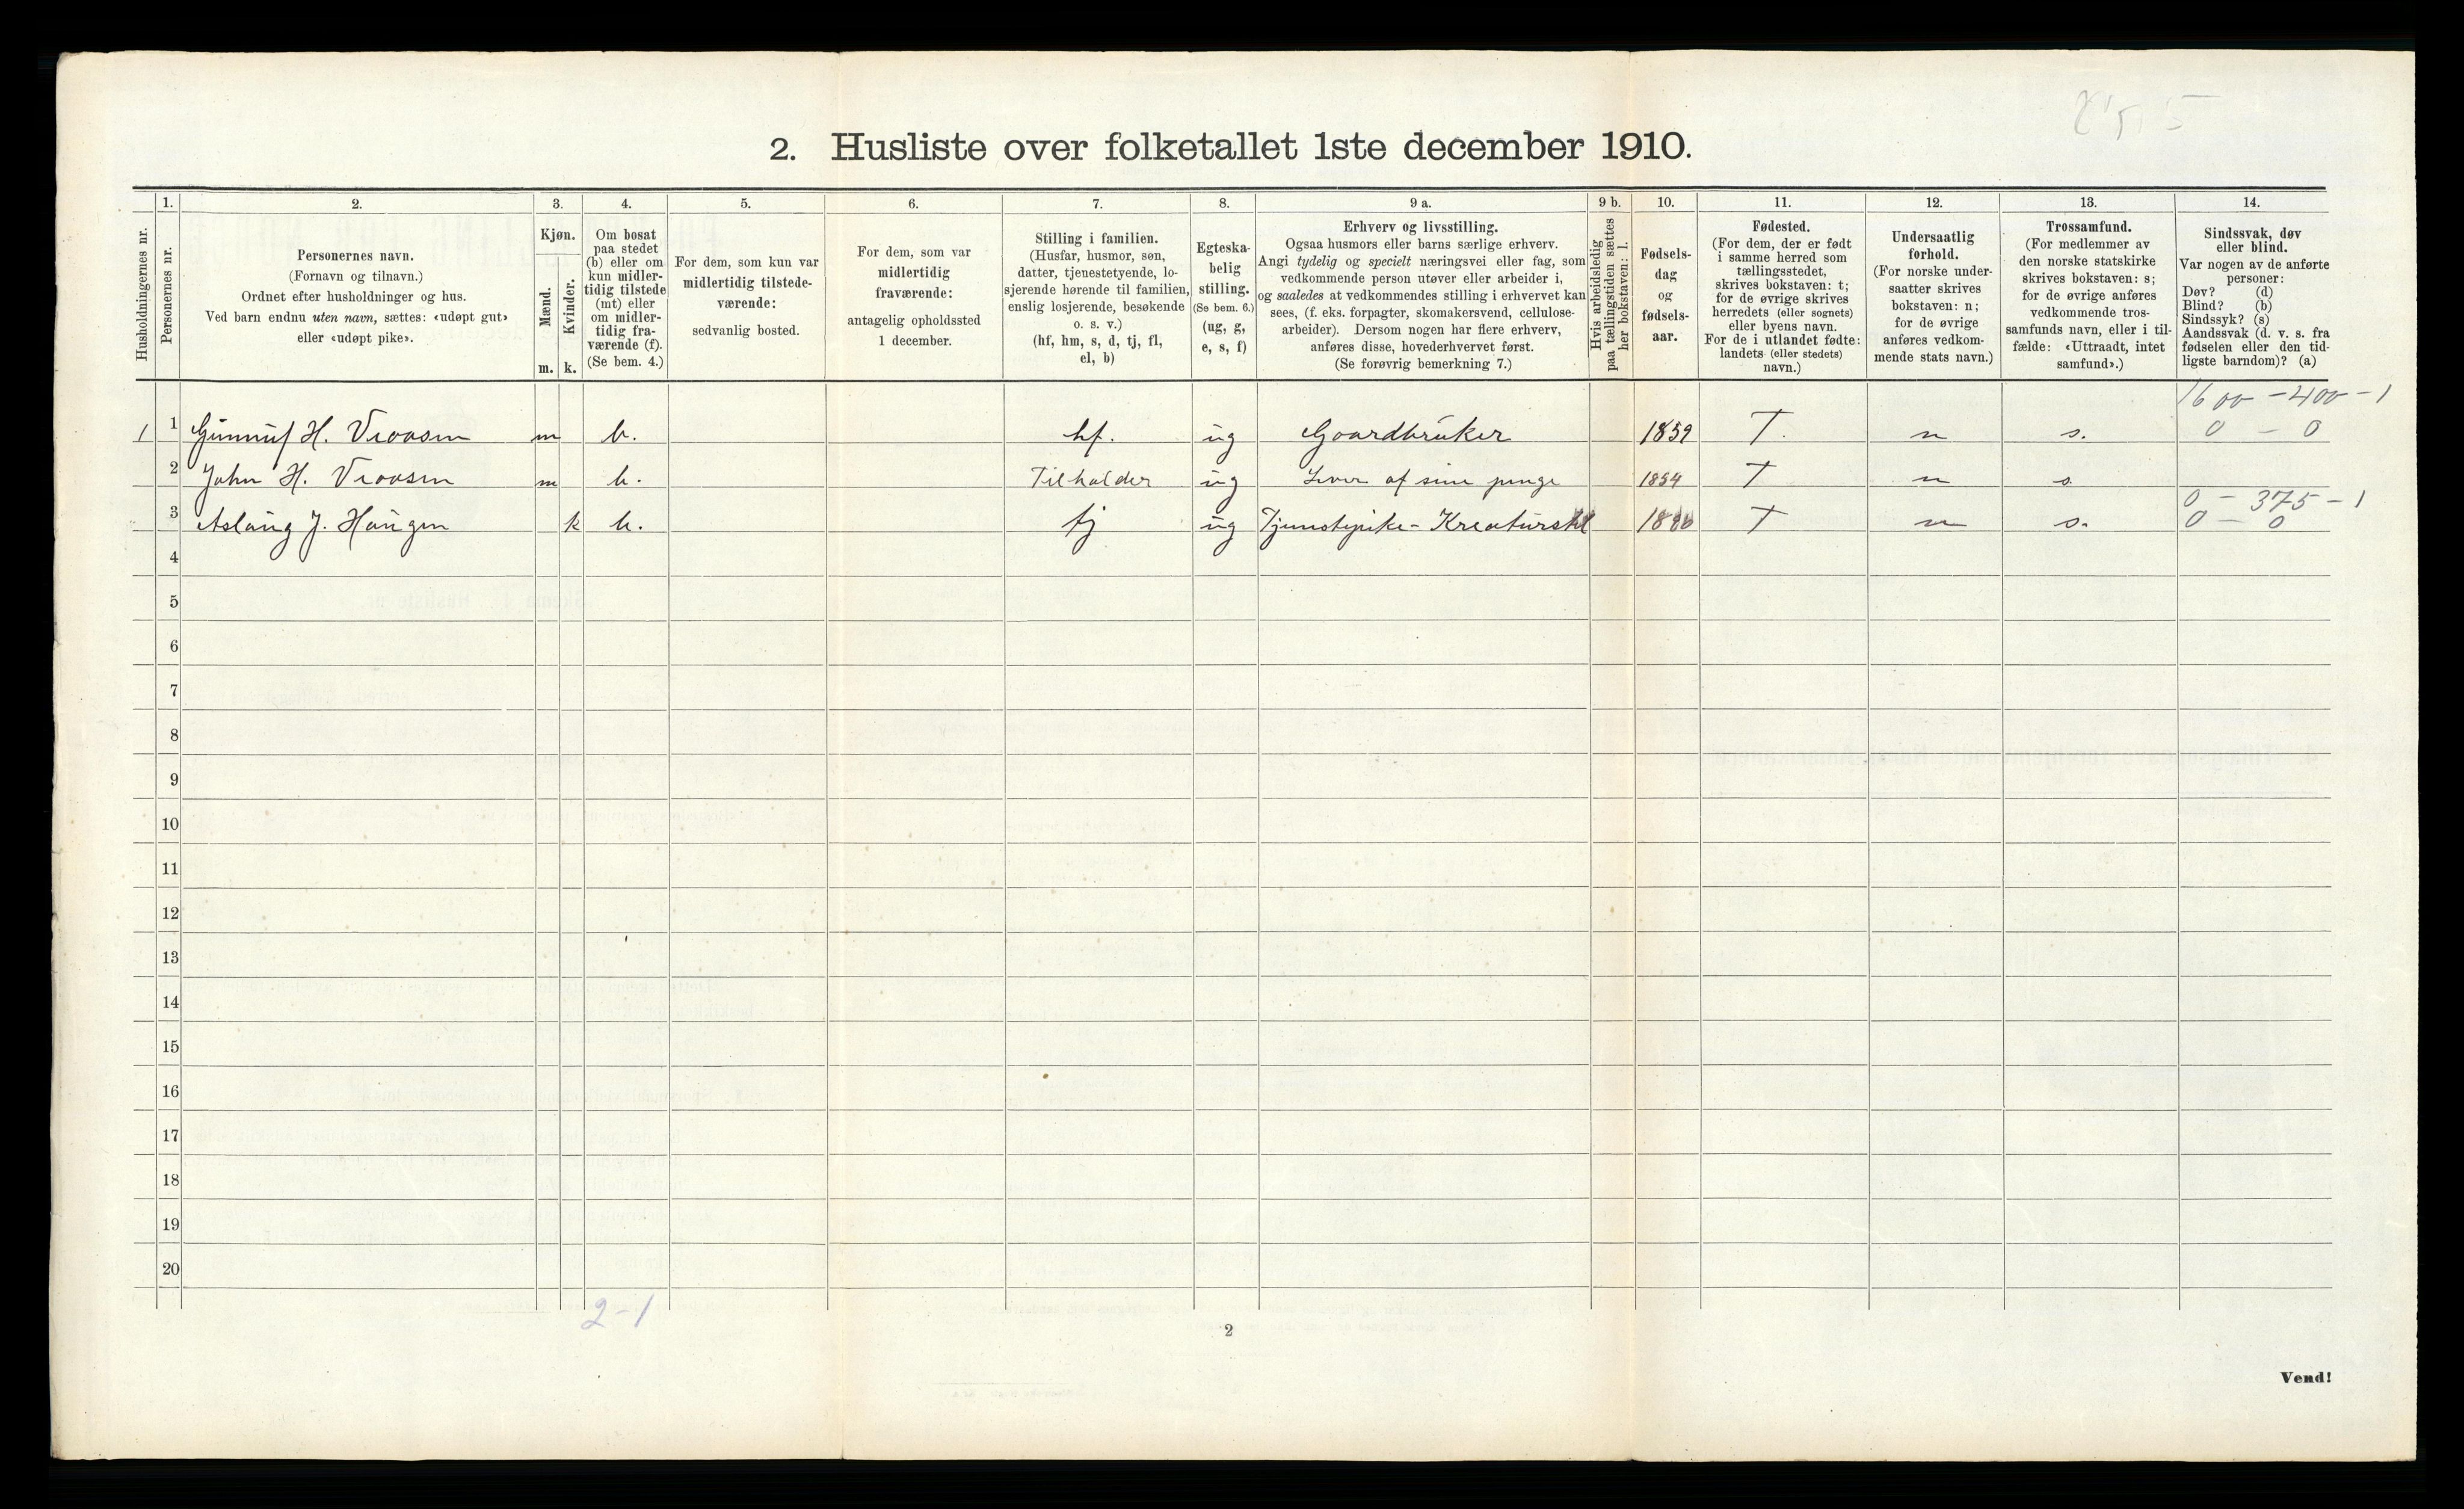 2. Husliste over folketallet 1ste december 1910.
Husholdningernes nr.
1.
Personernes nr.
2.
Personernes navn.
(Fornavn og tilnavn.)
Ordnet efter husholdninger og hus.
Ved barn endnu uten navn, sættes: «udøpt gut»
eller «udøpt pike».
3.
Kjøn.
Mænd.
Kvinder.
m. k.
4.
Om bosat
paa stedet
(b) eller om
kun midler-
tidig tilstede
(mt) eller
om midler-
tidig fra-
værende (f).
(Se bem. 4.)
5.
For dem, som kun var
midlertidig tilstede-
værende:
sedvanlig bosted.
6.
For dem, som var
midlertidig
fraværende:
antagelig opholdssted
1 december.
7.
Stilling i familien.
(Husfar, husmor, søn,
datter, tjenestetyende, lo-
sjerende hørende til familien,
enslig losjerende, besøkende
o. s. v.)
(hf, hm, s, d, tj, fl,
el, b)
8.
Egteska-
belig
stilling.
(Se bem. 6.)
(ug, g,
e, s, f)
9 a.
Erhverv og livsstilling.
Ogsaa husmors eller barns særlige erhverv.
Angi tydelig og specielt næringsvei eller fag, som
vedkommende person utøver eller arbeider i,
og saaledes at vedkommendes stilling i erhvervet kan
sees, (f. eks. forpagter, skomakersvend, cellulose-
arbeider). Dersom nogen har flere erhverv,
anføres disse, hovederhvervet først.
(Se forøvrig bemerkning 7.)
9 b.
Hvis arbeidsledig
paa tællingstiden sættes
her bokstaven: l.
10.
Fødsels-
dag
og
fødsels-
aar.
11.
Fødested.
(For dem, der er født
i samme herred som
tællingsstedet,
skrives bokstaven: t;
for de øvrige skrives
herredets (eller sognets)
eller byens navn.
For de i utlandet fødte:
landets (eller stedets)
navn.)
12.
Undersaatlig
forhold.
(For norske under-
saatter skrives
bokstaven: n;
for de øvrige
anføres vedkom-
mende stats navn.)
13.
Trossamfund.
(For medlemmer av
den norske statskirke
skrives bokstaven: s;
for de øvrige anføres
vedkommende tros-
samfunds navn, eller i til-
fælde: «Uttraadt, intet
samfund».)
14.
Sindssvak, døv
eller blind.
Var nogen av de anførte
personer:
Døv? (d)
Blind? (b)
Sindssyk? (s)
Aandssvak (d. v. s. fra
fødselen eller den tid-
ligste barndom)? (a)
1600 - 400 - 1
1 1 Gunnuf H. Vraasen m b. hf. ug Gaardbruker 1859 T. n s. 0 - 0
2 John H. Vraasen m b. Tilholder ug Lever af sine penge 1854 T n s.
0 - 375 - 1
3 Aslaug J. Haugen k b. tj ug Tjenestepike - Kreaturstel 1886 T n s. 0 - 0
4
5
6
7
8
9
10
11
12
13
14
15
16
17
18
19
20
2-1
2
Vend!